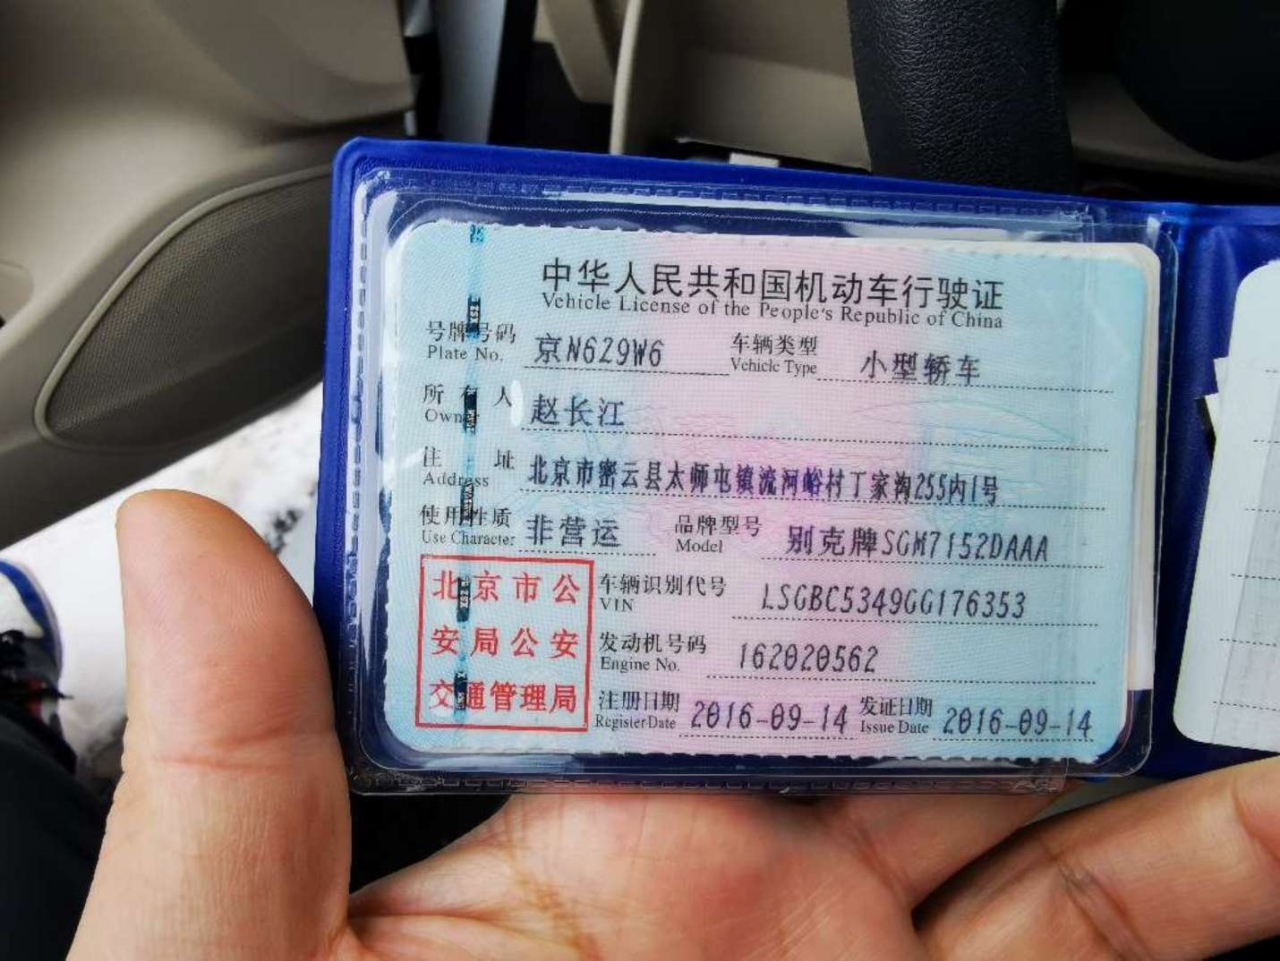 中华人民共和国机动车行驶证
Vehicle License of the People's Republic of China
号牌号码 京N629W6 车辆类型 小型轿车
Plate No. Vehicle Type
所有人 赵长江
Owner
住址 北京市密云县太师屯镇流河峪村丁家沟255内1号
Address
使用性质 非营运 品牌型号 别克牌SGM7152DAAA
Use Character Model
北京市公
安局公安
交通管理局
车辆识别代号 LSGBC5349GG176353
VIN
发动机号码 162020562
Engine No.
注册日期 2016-09-14 发证日期 2016-09-14
Register Date Issue Date